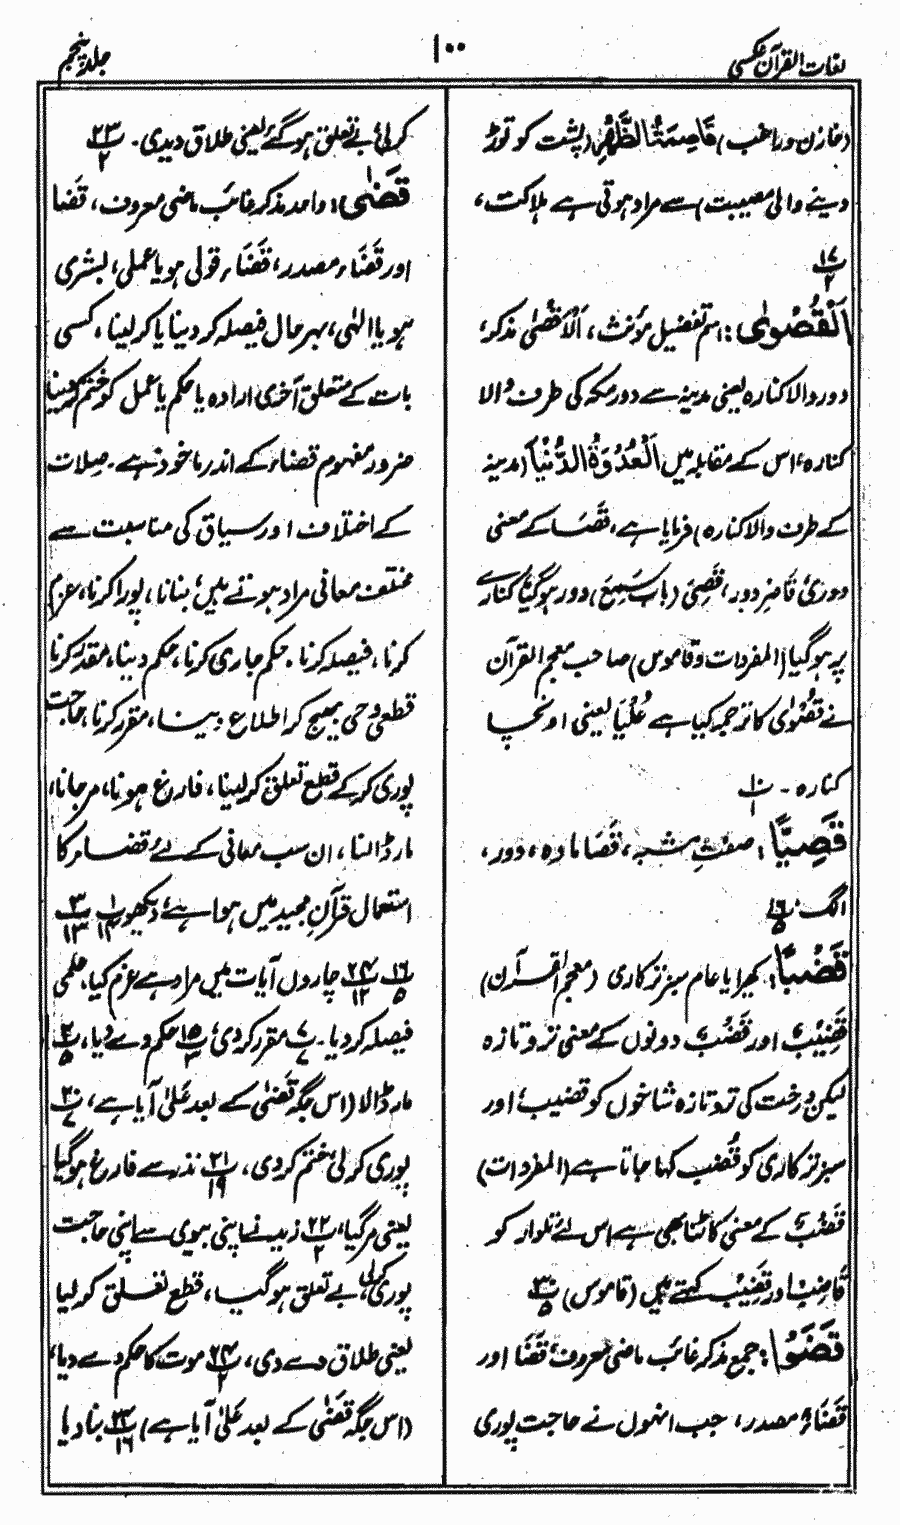 لغات القرآن عکسی
۱۰۰
جلد پنجم
(خازن و راغب) قَاصِمَۃُ الظَّھْرِ (پشت کو توڑ
دینے والی مصیبت) سے مراد ہوتی ہے ہلاکت،
پ ۱۷ ۲
اَلْقُصْوٰی: اسم تفضیل مؤنث، اَلْاَقْصٰی مذکر،
دور والا کنارہ یعنی مدینہ سے دور مکہ کی طرف والا
کنارہ، اس کے مقابلہ میں اَلْعُدْوَۃُ الدُّنْیَا (مدینہ
کے طرف والا کنارہ) فرمایا ہے، قَصَا کے معنی
دوری، قَاصٍ دور، قَصِیَ (باب سَمِعَ) دور ہو گیا، کنارے
پر ہو گیا (المفردات و قاموس) صاحب معجم القرآن
نے قُصْوٰی کا ترجمہ کیا ہے عُلْیَا یعنی اونچا
کنارہ۔ پ ۱۰ ۱
قَصِیًّا: صفتِ مشبہ، قَصَا مادہ، دور،
الگ، پ ۱۶ ۵
قَضْبًا: کھیرا یا عام سبز ترکاری (معجم القرآن)
قَضِیْبٌ اور قَضْبٌ دونوں کے معنی تر و تازہ
لیکن درخت کی تر و تازہ شاخوں کو قضیب، اور
سبز ترکاری کو قُضْب کہا جاتا ہے (المفردات)
قَضْبٌ کے معنی کاٹنا بھی ہے اس لئے تلوار کو
قَاضِبٌ اور قَضِیْبٌ کہتے ہیں (قاموس) پ ۳۰ ۵
قَضَوْا: جمع مذکر غائب ماضی معروف، قَضَا اور
قَضَاءٌ مصدر، جب انہوں نے حاجت پوری
کر لی، بے تعلق ہو گئے یعنی طلاق دیدی۔ پ ۲۳ ۲
قَضٰی: واحد مذکر غائب ماضی معروف، قَضَا
اور قَضَاء مصدر، قَضَاء قولی ہو یا عملی، بشری
ہو یا الٰہی، بہر حال فیصلہ کر دینا یا کر لینا، کسی
بات کے متعلق آخری ارادہ یا حکم یا عمل کو ختم کر دینا
ضرور مفہوم قضاء کے اندر ماخوذ ہے۔ صِلات
کے اختلاف اور سیاق کی مناسبت سے
مختلف معانی مراد ہوتے ہیں، بنانا، پورا کرنا، عزم
کرنا، فیصلہ کرنا۔ حکم جاری کرنا، حکم دینا، مقدر کرنا
قطعی وحی بھیج کر اطلاع دینا، مقرر کرنا، حاجت
پوری کر کے قطع تعلق کر لینا، فارغ ہونا، مر جانا،
مار ڈالنا، ان سب معانی کے لئے قضاء کا
استعمال قرآنِ مجید میں ہوا ہے، دیکھو پ ۱ ۱۴ پ ۳ ۱۳
پ ۱۶ ۵ پ ۲۴ ۱۲ چاروں آیات میں مراد ہے عزم کیا، علمی
فیصلہ کر دیا۔ پ ۷ ۷ مقرر کر دی، پ ۱۵ ۳ حکم دے دیا، پ ۲۰ ۵
مار ڈالا (اس جگہ قَضٰی کے بعد عَلیٰ آیا ہے، پ ۲۰ ۷
پوری کر لی، ختم کر دی، پ ۲۱ ۱۹ نذر سے فارغ ہو گیا
یعنی مر گیا، پ ۲۲ ۲ زید نے اپنی بیوی سے اپنی حاجت
پوری کر لی، بے تعلق ہو گیا، قطع تعلق کر لیا
یعنی طلاق دے دی، پ ۲۴ ۲ موت کا حکم دے دیا،
(اس جگہ قَضٰی کے بعد عَلیٰ آیا ہے) پ ۲۴ ۱۶ بنا دیا